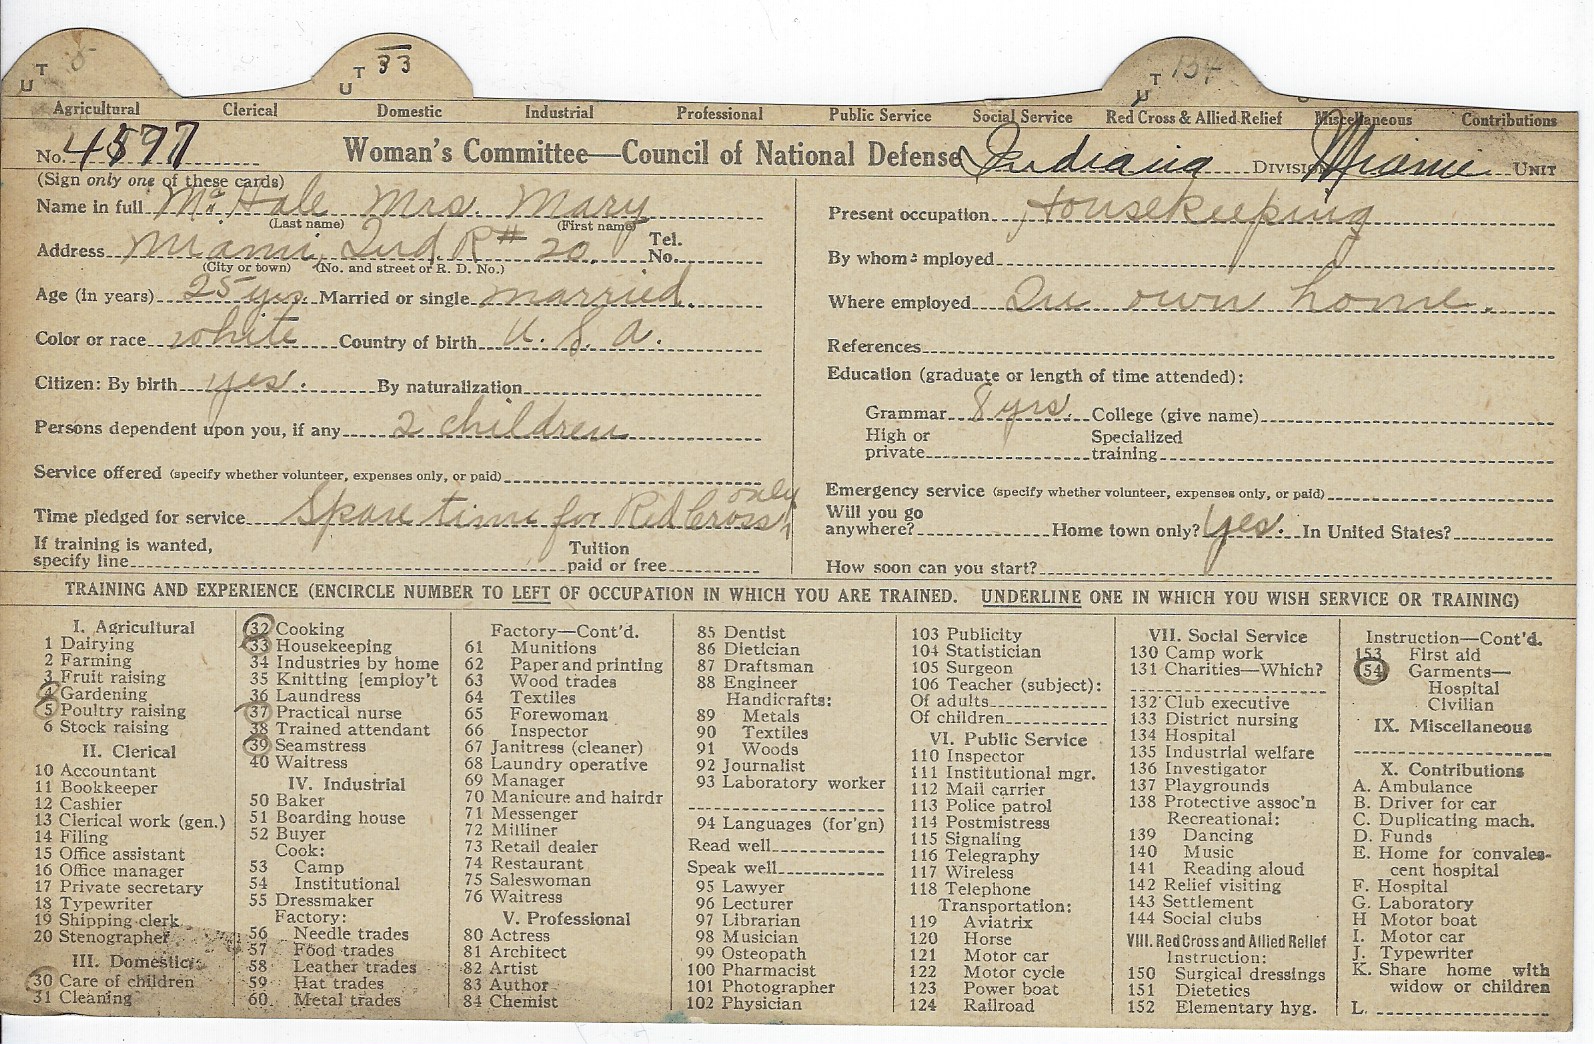 U T 5
U T 33
U T 154
Agricultural Clerical Domestic Industrial Professional Public Service Social Service Red Cross & Allied Relief Miscellaneous Contributions
No. 4597 Woman's Committee—Council of National Defense Indiana Division Miami Unit
(Sign only one of these cards)
Name in full Mc Hale Mrs. Mary
(Last name) (First name)
Address Miami, Ind. R# 20. Tel. No.
(City or town) (No. and street or R. D. No.)
Age (in years) 25 yrs. Married or single married.
Color or race white Country of birth U. S. A.
Citizen: By birth yes. By naturalization
Persons dependent upon you, if any 2 children
Service offered (specify whether volunteer, expenses only, or paid)
Time pledged for service Spare time for Red Cross only
If training is wanted, specify line Tuition paid or free
Present occupation Housekeeping
By whom mployed
Where employed In own home.
References
Education (graduate or length of time attended):
Grammar 8 yrs. College (give name)
High or private Specialized training
Emergency service (specify whether volunteer, expenses only, or paid)
Will you go anywhere? Home town only? Yes. In United States?
How soon can you start?
TRAINING AND EXPERIENCE (ENCIRCLE NUMBER TO LEFT OF OCCUPATION IN WHICH YOU ARE TRAINED. UNDERLINE ONE IN WHICH YOU WISH SERVICE OR TRAINING)
I. Agricultural
1 Dairying
2 Farming
3 Fruit raising
4 Gardening
5 Poultry raising
6 Stock raising
II. Clerical
10 Accountant
11 Bookkeeper
12 Cashier
13 Clerical work (gen.)
14 Filing
15 Office assistant
16 Office manager
17 Private secretary
18 Typewriter
19 Shipping clerk
20 Stenographer
III. Domestic
30 Care of children
31 Cleaning
32 Cooking
33 Housekeeping
34 Industries by home
35 Knitting [employ't
36 Laundress
37 Practical nurse
38 Trained attendant
39 Seamstress
40 Waitress
IV. Industrial
50 Baker
51 Boarding house
52 Buyer
Cook:
53 Camp
54 Institutional
55 Dressmaker
Factory:
56 Needle trades
57 Food trades
58 Leather trades
59 Hat trades
60. Metal trades
Factory—Cont'd.
61 Munitions
62 Paper and printing
63 Wood trades
64 Textiles
65 Forewoman
66 Inspector
67 Janitress (cleaner)
68 Laundry operative
69 Manager
70 Manicure and hairdr
71 Messenger
72 Milliner
73 Retail dealer
74 Restaurant
75 Saleswoman
76 Waitress
V. Professional
80 Actress
81 Architect
82 Artist
83 Author
84 Chemist
85 Dentist
86 Dietician
87 Draftsman
88 Engineer
Handicrafts:
89 Metals
90 Textiles
91 Woods
92 Journalist
93 Laboratory worker
94 Languages (for'gn)
Read well
Speak well
95 Lawyer
96 Lecturer
97 Librarian
98 Musician
99 Osteopath
100 Pharmacist
101 Photographer
102 Physician
103 Publicity
104 Statistician
105 Surgeon
106 Teacher (subject):
Of adults
Of children
VI. Public Service
110 Inspector
111 Institutional mgr.
112 Mail carrier
113 Police patrol
114 Postmistress
115 Signaling
116 Telegraphy
117 Wireless
118 Telephone
Transportation:
119 Aviatrix
120 Horse
121 Motor car
122 Motor cycle
123 Power boat
124 Railroad
VII. Social Service
130 Camp work
131 Charities—Which?
132 Club executive
133 District nursing
134 Hospital
135 Industrial welfare
136 Investigator
137 Playgrounds
138 Protective assoc'n
Recreational:
139 Dancing
140 Music
141 Reading aloud
142 Relief visiting
143 Settlement
144 Social clubs
VIII. Red Cross and Allied Relief
Instruction:
150 Surgical dressings
151 Dietetics
152 Elementary hyg.
Instruction—Cont'd.
153 First aid
154 Garments—
Hospital
Civilian
IX. Miscellaneous
X. Contributions
A. Ambulance
B. Driver for car
C. Duplicating mach.
D. Funds
E. Home for convales-
cent hospital
F. Hospital
G. Laboratory
H Motor boat
I. Motor car
J. Typewriter
K. Share home with
widow or children
L.